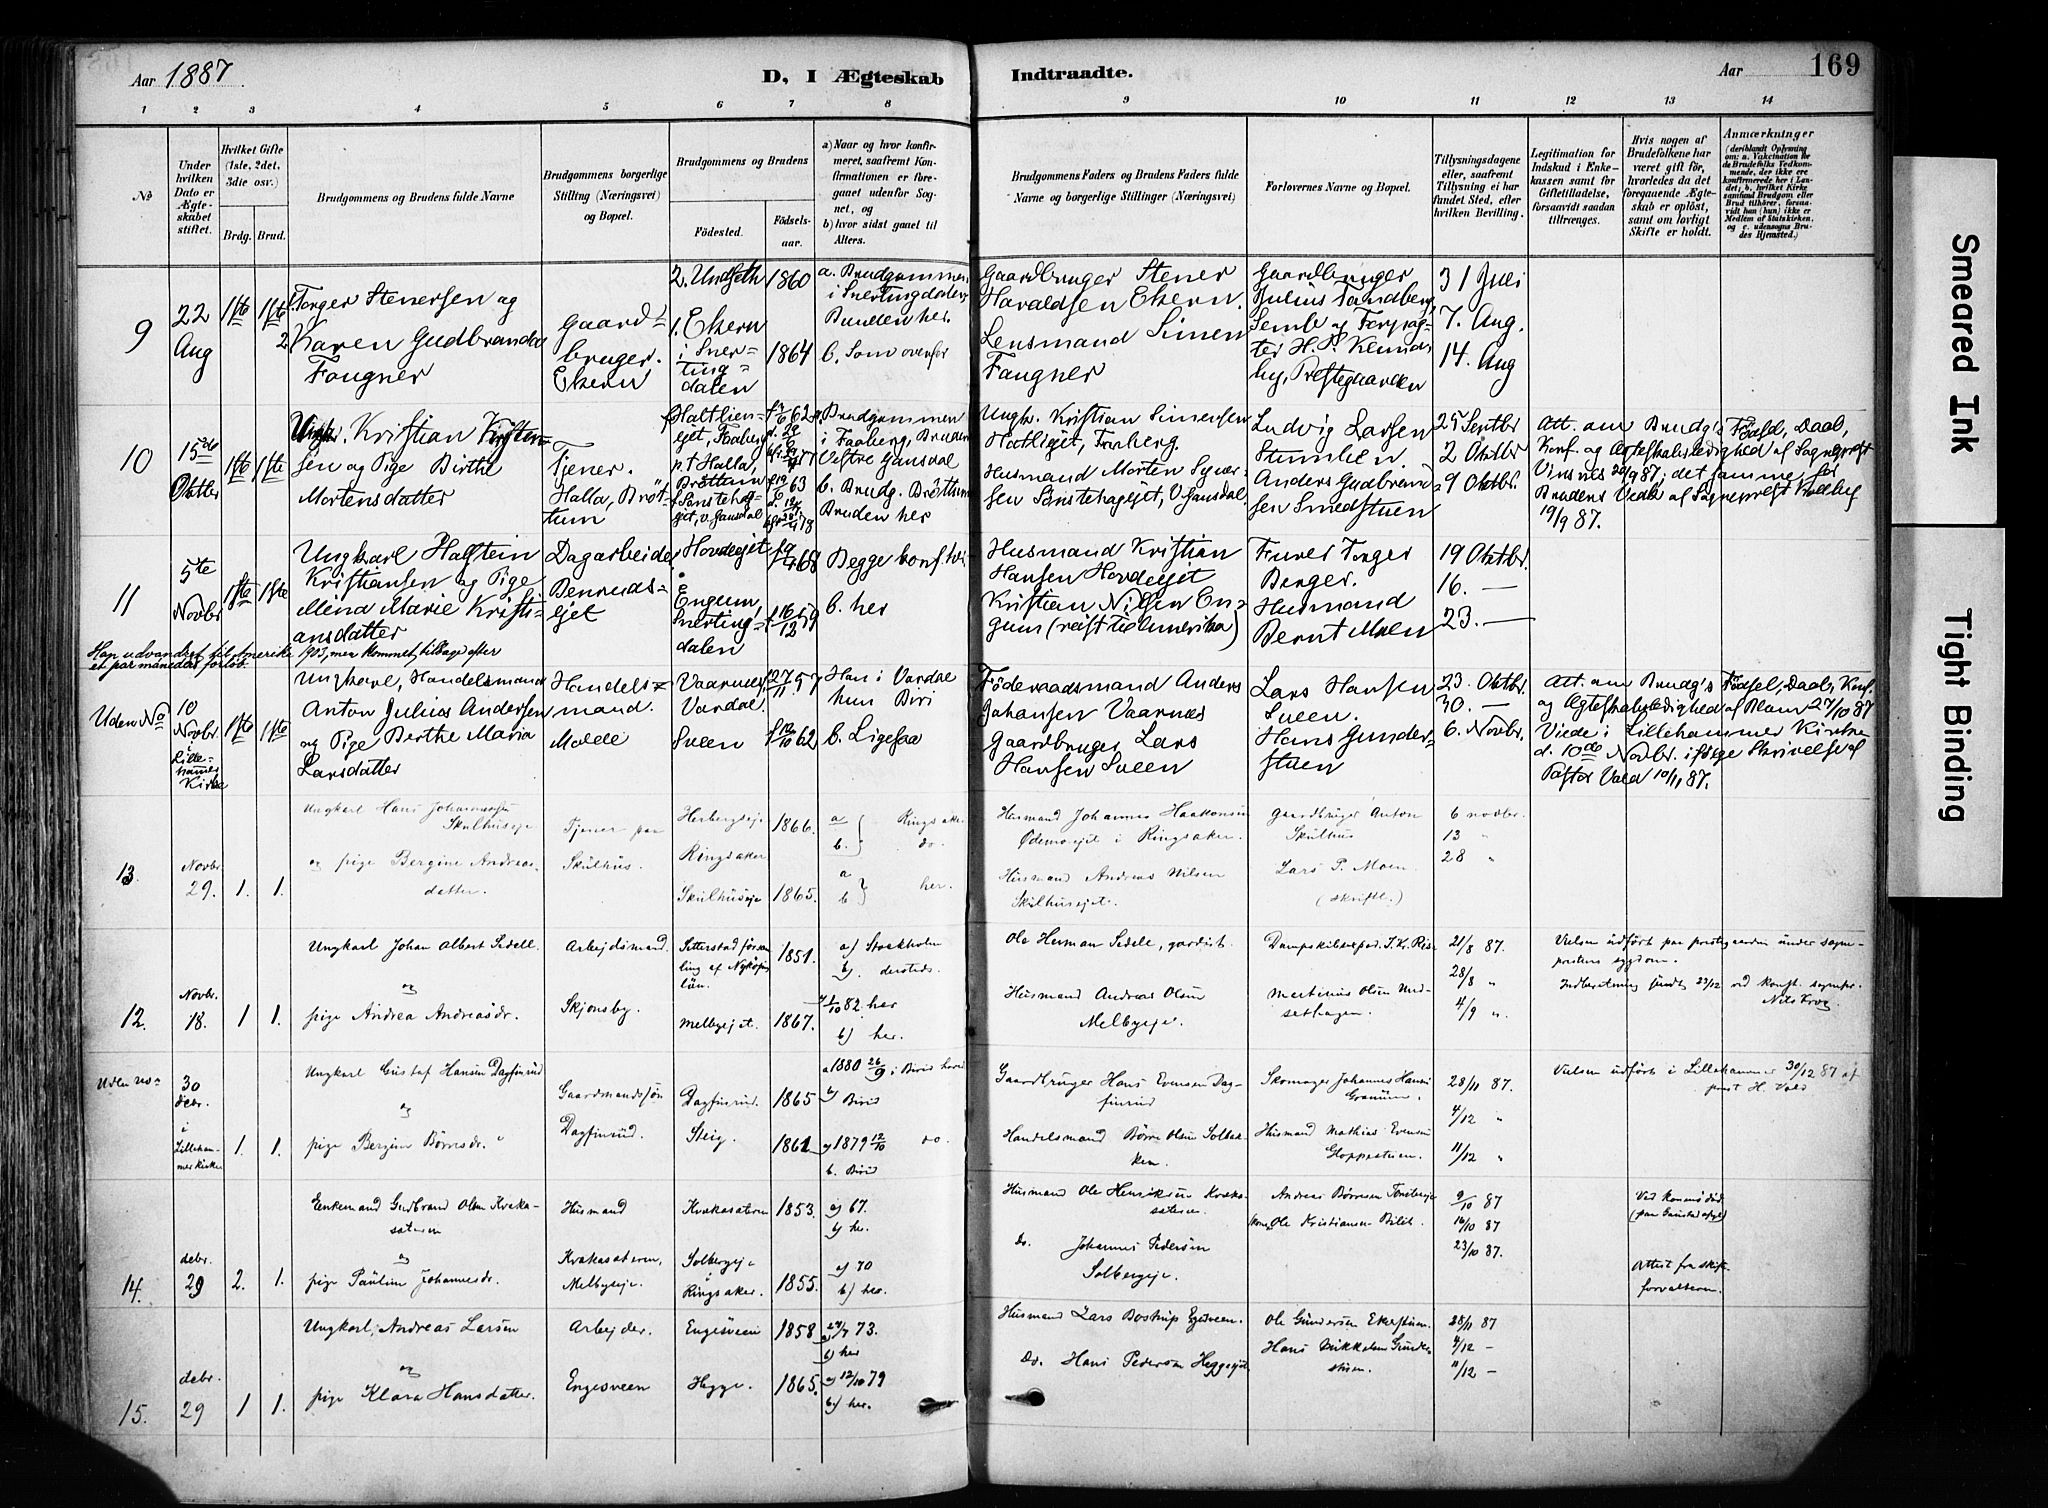 Aar 1887
D, I Ægteskab Indtraadte.
Aar
169
1 2 3 4 5 6 7 8 9 10 11 12 13 14
No
Under hvilken Dato er Ægteskabet stiftet.
Hvilket Gifte (1ste, 2det, 3die osv.)
Brdg. Brud.
Brudgommens og Brudens fulde Navne
Brudgommens borgerlige Stilling (Næringsvei) og Bopæl.
Brudgommens og Brudens
Fødested.
Fødselsaar.
a) Naar og hvor konfirmeret, saafremt Konfirmationen er foregaaet udenfor Sognet, og
b) hvor sidst gaaet til Alters.
Brudgommens Faders og Brudens Faders fulde Navne og borgerlige Stillinger (Næringsvei)
Forlovernes Navne og Bopæl.
Tillysningsdagene eller, saafremt Tillysning ei har fundet Sted, efter hvilken Bevilling.
Legitimation for Indskud i Enkekassen samt for Giftetilladelse, forsaavidt saadan tiltrænges.
Hvis nogen af Brudefolkene har været gift før, hvorledes da det foregaaende Ægteskab er opløst, samt om lovligt Skifte er holdt.
Anmærkninger (deriblandt Oplysning om: a. Vakcination for de Brudefolks Vedkommende, der ikke ere konfirmerede her i Landet; b. hvilket Kirkesamfund Brudgom eller Brud tilhører, forsaavidt han (hun) ikke er Medlem af Statskirken, og c. udensogns Brudes Hjemsted.)
9
22 Aug
1ste 1ste
Torger Stenersen og
2 Karen Gudbranda
Fougner
Gaardbruger.
Ekern
2. Undseth 1860
1. Ekern i Snertingdalen 1864
a. Brudgommen i Snertingdalen, Bruden her.
b. Som ovenfor
Gaardbruger Stener
Haraldsen Ekern.
Lensmand Simen
Fougner
Gaardbruger
Julius Sandberg,
Semb og Forpagter H. P.
Prestegaarden
31 Juli
7. Aug.
14. Aug
10
15de Oktbr
1ste 1ste
Ungk. Kristian Kristensen og Pige Birthe
Mortensdatter
Tjener.
Halla, Brøttum
p. t. Halla,
Brøttum
a. Brudgommen
i Faaberg, Bruden
Vestre Gausdal
b. Brudg. Brøttum
Bruden her
Ungk. Kristian Simensen
Hatliget, Faaberg.
Husmand Morten
V. Gausdal
Ludvig Larsen
Stumlien.
Anders Gudbrandsen Smedstuen
25 Septbr
2 Oktbr
9 Oktbr.
Att. om Brudg's Fødsel, Daab,
Konf. og Ægteskabsledighed af Sogneprest
Vinsnes 20/9 87; det samme for
Brudens Vedk. af Sogneprest
19/9 87.
11
5te Novbr
1ste 1ste
Ungkarl Halstein
Kristiansen og Pige
Mina Marie Kristiansdatter
Dagarbeider
Bennrudsejet
Hovdeejet
Engum,
Snertingdalen
f. 9/4 68
f. 16/12 59
Begge konf. her
b. her
Husmand Kristian
Hansen Hovdeejet
Kristian Nilsen Engum (reist til Amerika)
Furer Torger
Berger.
Husmand
Bernt Moen
19 Oktbr.
16. —
23. —
Han udvandret til Amerika 1903, men kommet tilbage efter
et par måneders forløb.
Uden No
10 Novbr. i Lillehammer Kirke
1ste 1ste
Ungkarl, Handelsmand
Anton Julius Andersen
og Pige Berthe Maria
Larsdatter
Handelsmand.
Molde
Vaarnes, Vardal
Sveen
27/11 57
f. 12/10 62
Han i Vardal
hun Biri
b. Ligesaa
Föderaadsmand Anders
Johansen Vaarnæs
Gaardbruger Lars
Hansen Sveen
Lars Hansen
Sveen.
Hans Gunderstuen
23. Oktbr.
30. —
6. Novbr.
Att. om Brudg's Fødsel, Daab, Konf.
og Ægteskabsledighed af Blom 27/10 87
Viede i Lillehammer Kirke
d. 10de Novbr. ifølge Skrivelse af
Pastor Vold 10/11 87.
13.
Novbr. 29.
1. 1.
Ungkarl Hans Johannessen
Skulhuseje
og pige Bergine Andreasdatter.
Tjener paa
Skulhus.
Herbergseje
Ringsaker
Skulhuseje
1866.
1865.
a b. Ringsaker do.
a b her.
Husmand Johannes Haakonsen
Ødemoejet i Ringsaker.
Husmand Andreas Nilsen
Skulhusejet.
Gaardbruger Anton
Skulhus
Lars P. Moen.
(skriftl.)
6 novbr.
13 "
28 "
12.
Novbr. 18.
1 1.
Ungkarl Johan Albert Sedell.
og
pige Andrea Andreasdr.
Arbejdsmand.
Skjonsby.
Sitterstad församling af Nyköpings län.
Melbyejet.
1851.
1867.
a) Stockholm
b). dersteds.
a) 1/10 82. her
b) her.
Ole Herman Sedele, gardist.
Husmand Andreas Olsen
Melbyeje.
Martinius Olsen Undsethagen.
21/8 87.
28/8 "
4/9 ".
Vielsen udført paa prestegaarden under sogneprestens sygdom.
Indberetning sendt 23/12 ved konst. sognepr.
Nils Krog.
Uden no
30 debr. i Lillehammer kirke
1. 1.
Ungkarl Gustaf Hansen Dagfinrud
og
pige Bergine Børresdr.
Gaardmandssøn
Dagfinrud.
Dagfinrud.
Steig.
1865
1861
a 1880 26/9 i Biris hoved
b) Biris
a) 1879 12/10 do.
b. Biris
Gaardbruger Hans Evensen Dagfinrud
Handelsmand Børre Olsen Solbakken
Skomager Johannes Hansen
Granum.
Husmand Mathias Evensen
Gloppestuen.
28/11 87.
4/12 "
11/12 "
Vielsen udført i Lillehammer 30/12 87 af
prest H. Vold
14.
debr. 29
2. 1.
Enkemand Gudbrand Olsen Krakasæteren
og
pige Pauline Johannesdr.
Husmand
Krakasæteren,
Melbyeje.
Krakasæteren
Solbergeje
i
Ringsaker.
1853.
1855.
a) 67.
b) her.
a) 70
b) her.
Husmand Ole Henriksen Krakasæteren.
Do. Johannes Pedersen
Solbergeje.
Andreas Børresen
Ole Kristiansen Bilit.
9/10 87
16/10 87
23/10 87.
Ved konens død
Attest fra skifteforvalteren.
15.
debr. 29
1 1.
Ungkarl, Andreas Larsen
og
pige Klara Hansdatter.
Arbejder.
Engesveen
Engesveen
Hegge.
1858
1865.
a) 27/7 73.
b) her
a) 12/10 79
b) her.
Husmand Lars Bostrup Engesveen.
Do. Hans Pedersen Heggeejet
Ole Gundersen Ekerstuen.
Hans Mikkelsen Gunderstuen.
28/11 87
4/12 -
11/12 -
Smeared Ink
Tight Binding